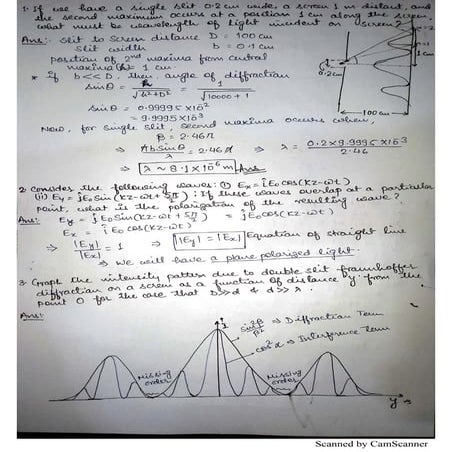 1. If we have a single slit 0.2 cm wide, a screen 1 m distant, and
the second maximum occurs at a position 1 cm along the screen,
what must be wavelength of light incident on screen?
Ans: Slit to Screen distance D = 100 cm
Slit width b = 0.1 cm
position of 2nd maxima from central
maxima = 1 cm
* if b << D, then, angle of diffraction
Sinθ = h/√(h²+D²) = 1/√(10000+1)
Sinθ = 0.9999 5 x10²
= 9.9995 x10³
Now, for single slit, second maxima occurs when,
β = 2.46π
⇒ πb sinθ/λ = 2.46π ⇒ λ = 0.2 x 9.9995 x10³/2.46
⇒ λ ~ 8.1 x10⁶ m Ans
0.2cm
100 cm
2. Consider the following waves: (i) Ex = îE₀cos(kz-ωt)
(ii) Ey = ĵE₀Sin(kz-ωt+5π/2); If these waves overlap at a particular
point, what is the polarization of the resulting wave?
Ans: Ey = ĵE₀Sin(kz-ωt+5π/2) = ĵE₀cos(kz-ωt)
Ex = îE₀cos(kz-ωt)
⇒ |Ey|/|Ex| = 1 ⇒ |Ey| = |Ex| Equation of straight line
⇒ We will have a plane polarized light.
3. Graph the intensity pattern due to double slit fraunhoffer
diffraction on a screen as a function of distance y from the
point O for the case that D>>d & d>>λ.
Ans:
I
sin²β/β² ⇒ Diffraction Term
cos²α ⇒ Interference Term
Missing order
Missing order
y
Scanned by CamScanner